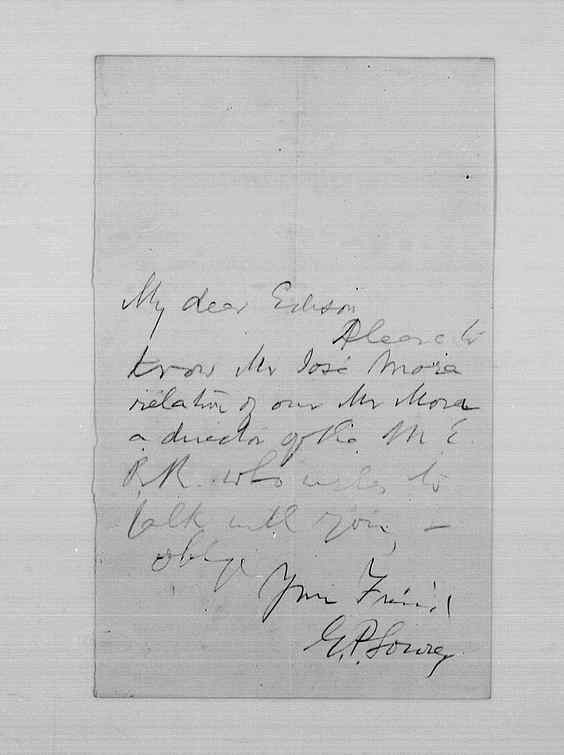 My dear Edison
Please to
know Mr José Mora
relation of our Mr Mora
a director of the M E.
R.R. who wishes to
talk with you, –
oblige
Your Friend
G.P. Lowrey